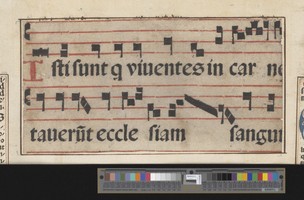 Isti sunt q̄ viventes in car ne
taverūt eccle siam sangui